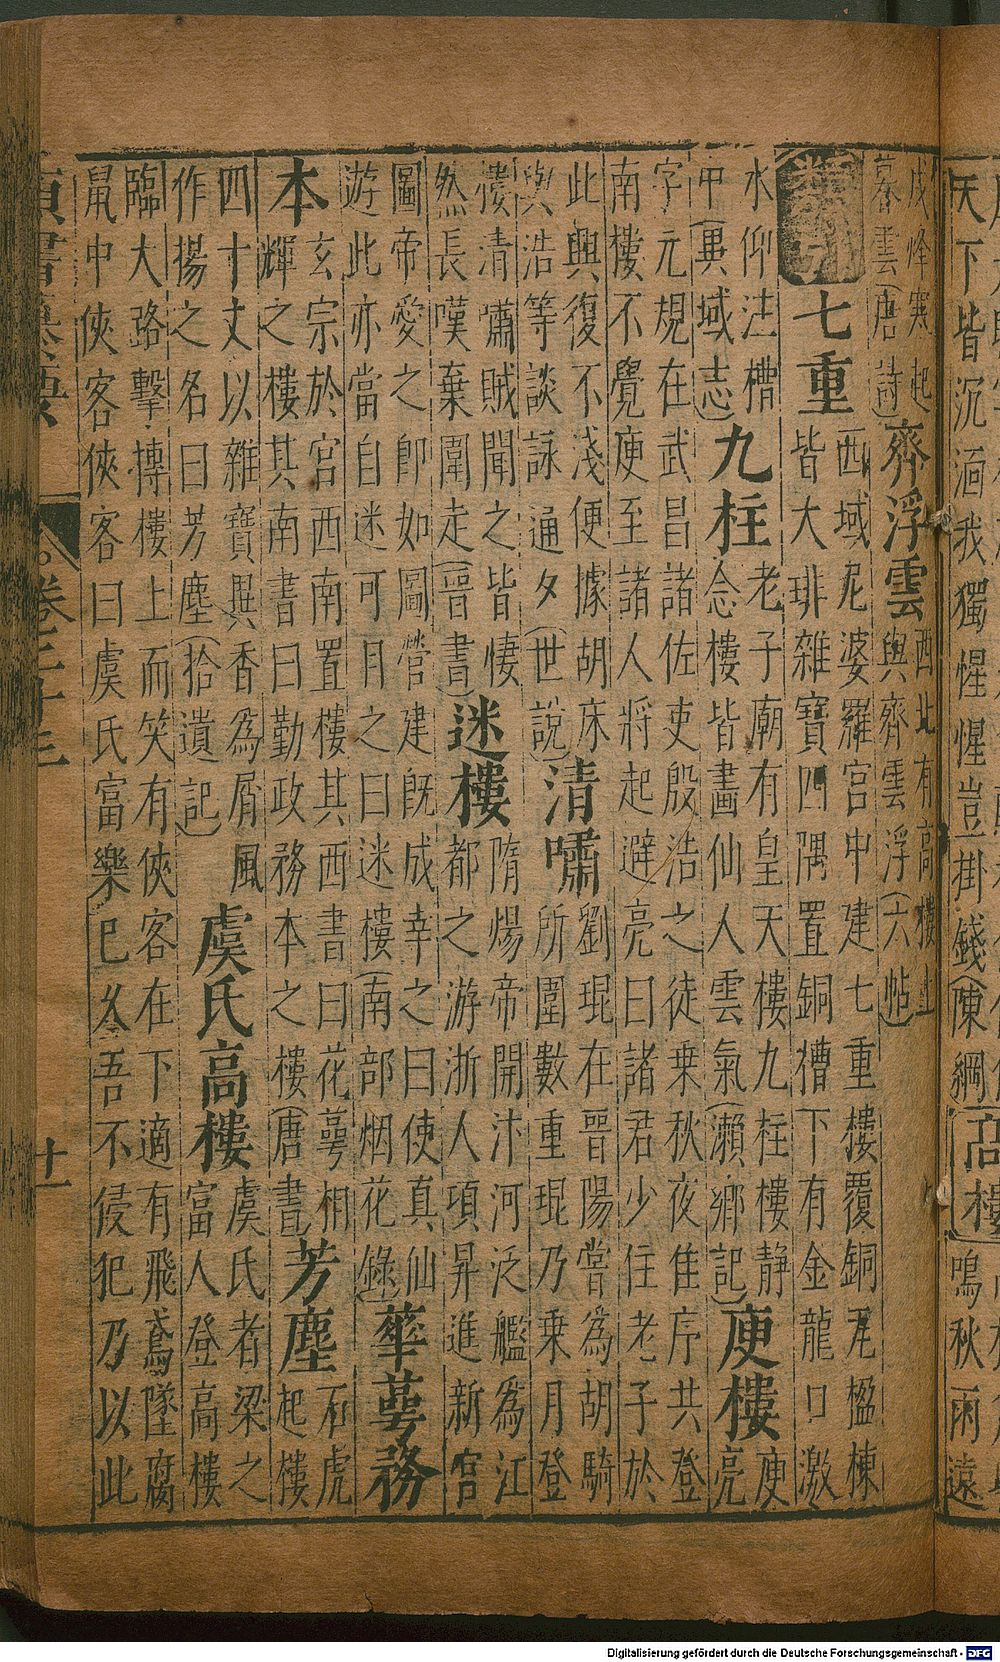 天下皆沉湎我獨惺惺豈掛錢(陳綱)高樓鳴秋雨遠
戍烽寒起
暮雲(唐詩)
齊浮雲
西北有高樓上
與齊雲浮(六帖)
七重
西域尼婆羅宮中建七重樓覆銅瓦楹棟
皆大琲雜寶四隅置銅槽下有金龍口激
水仰注槽
中(異域志)
九柱
老子廟有皇天樓九柱樓靜
念樓皆畫仙人雲氣(瀨鄉記)
庾樓
庾
亮
字元規在武昌諸佐吏殷浩之徒乗秋夜隹序共登
南樓不覺庾至諸人將起避亮曰諸君少住老子於
此興復不淺便據胡床
與浩等談詠通夕(世說)
清嘯
劉琨在晉陽嘗爲胡騎
所圍數重琨乃乗月登
樓清嘯賊聞之皆悽
然長嘆棄圍走(晉書)
迷樓
隋煬帝開汴河泛艦爲江
都之游浙人項昇進新宮
圖帝愛之卽如圖營建既成幸之曰使真仙
遊此亦當自迷可目之曰迷樓(南部烟花錄)
華萼務
本
玄宗於宮西南置樓其西書曰花萼相
輝之樓其南書曰勤政務本之樓(唐書)
芳塵
石虎
起樓
四十丈以雜寶異香爲屑風
作揚之名曰芳塵(拾遺記)
虞氏高樓
虞氏者梁之
富人登高樓
臨大路擊摶樓上而笑有俠客在下適有飛鳶墜腐
鼠中俠客俠客曰虞氏富樂已久吾不侵犯乃以此
類書纂要 卷三十三 十一
Digitalisierung gefördert durch die Deutsche Forschungsgemeinschaft - DFG